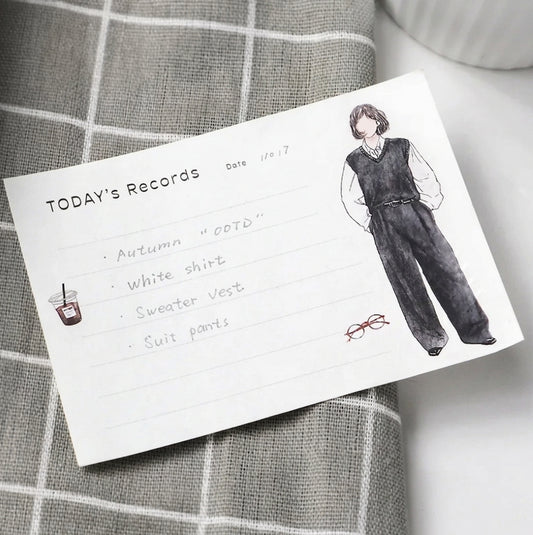 TODAY's Records
Date 11017
· Autumn "OOTD"
· white shirt
· Sweater vest
· Suit pants